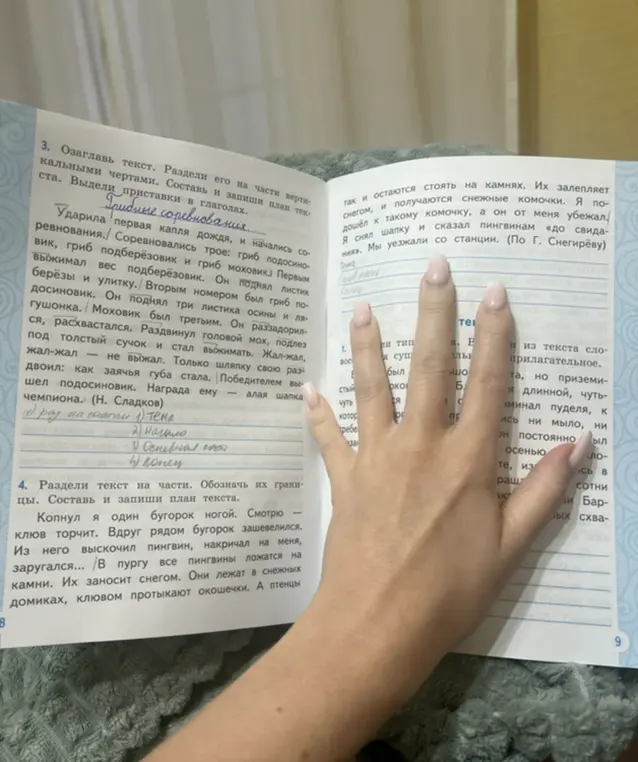 3. Озаглавь текст. Раздели его на части верти-
кальными чертами. Составь и запиши план тек-
ста. Выдели приставки в глаголах.
Грибные соревнования.
Ударила первая капля дождя, и начались со-
ревнования. Соревновались трое: гриб подосино-
вик, гриб подберёзовик и гриб моховик. Первым
выжимал вес подберёзовик. Он поднял листик
берёзы и улитку. Вторым номером был гриб по-
досиновик. Он поднял три листика осины и ля-
гушонка. Моховик был третьим. Он раззадорил-
ся, расхвастался. Раздвинул головой мох, подлез
под толстый сучок и стал выжимать. Жал-жал,
жал-жал — не выжал. Только шляпку свою раз-
двоил: как заячья губа стала. Победителем вы-
шел подосиновик. Награда ему — алая шапка
чемпиона. (Н. Сладков)
1) Тема
2) Начало
3) Основная
4) Конец
4. Раздели текст на части. Обозначь их грани-
цы. Составь и запиши план текста.
Копнул я один бугорок ногой. Смотрю —
клюв торчит. Вдруг рядом бугорок зашевелился.
Из него выскочил пингвин, накричал на меня,
заругался... В пургу все пингвины ложатся на
камни. Их заносит снегом. Они лежат в снежных
домиках, клювом протыкают окошечки. А птенцы
8
так и остаются стоять на камнях. Их залепляет
снегом, и получаются снежные комочки. Я по-
дошёл к такому комочку, а он от меня убежал.
Я снял шапку и сказал пингвинам «до свида-
ния». Мы уезжали со станции. (По Г. Снегирёву)
1. из текста сло-
прилагательное.
был но приземи-
длинной, чуть-
пуделя, к
ни мыло, ни
он постоянно был
осенью
в
сотни
Бар-
схва-
9